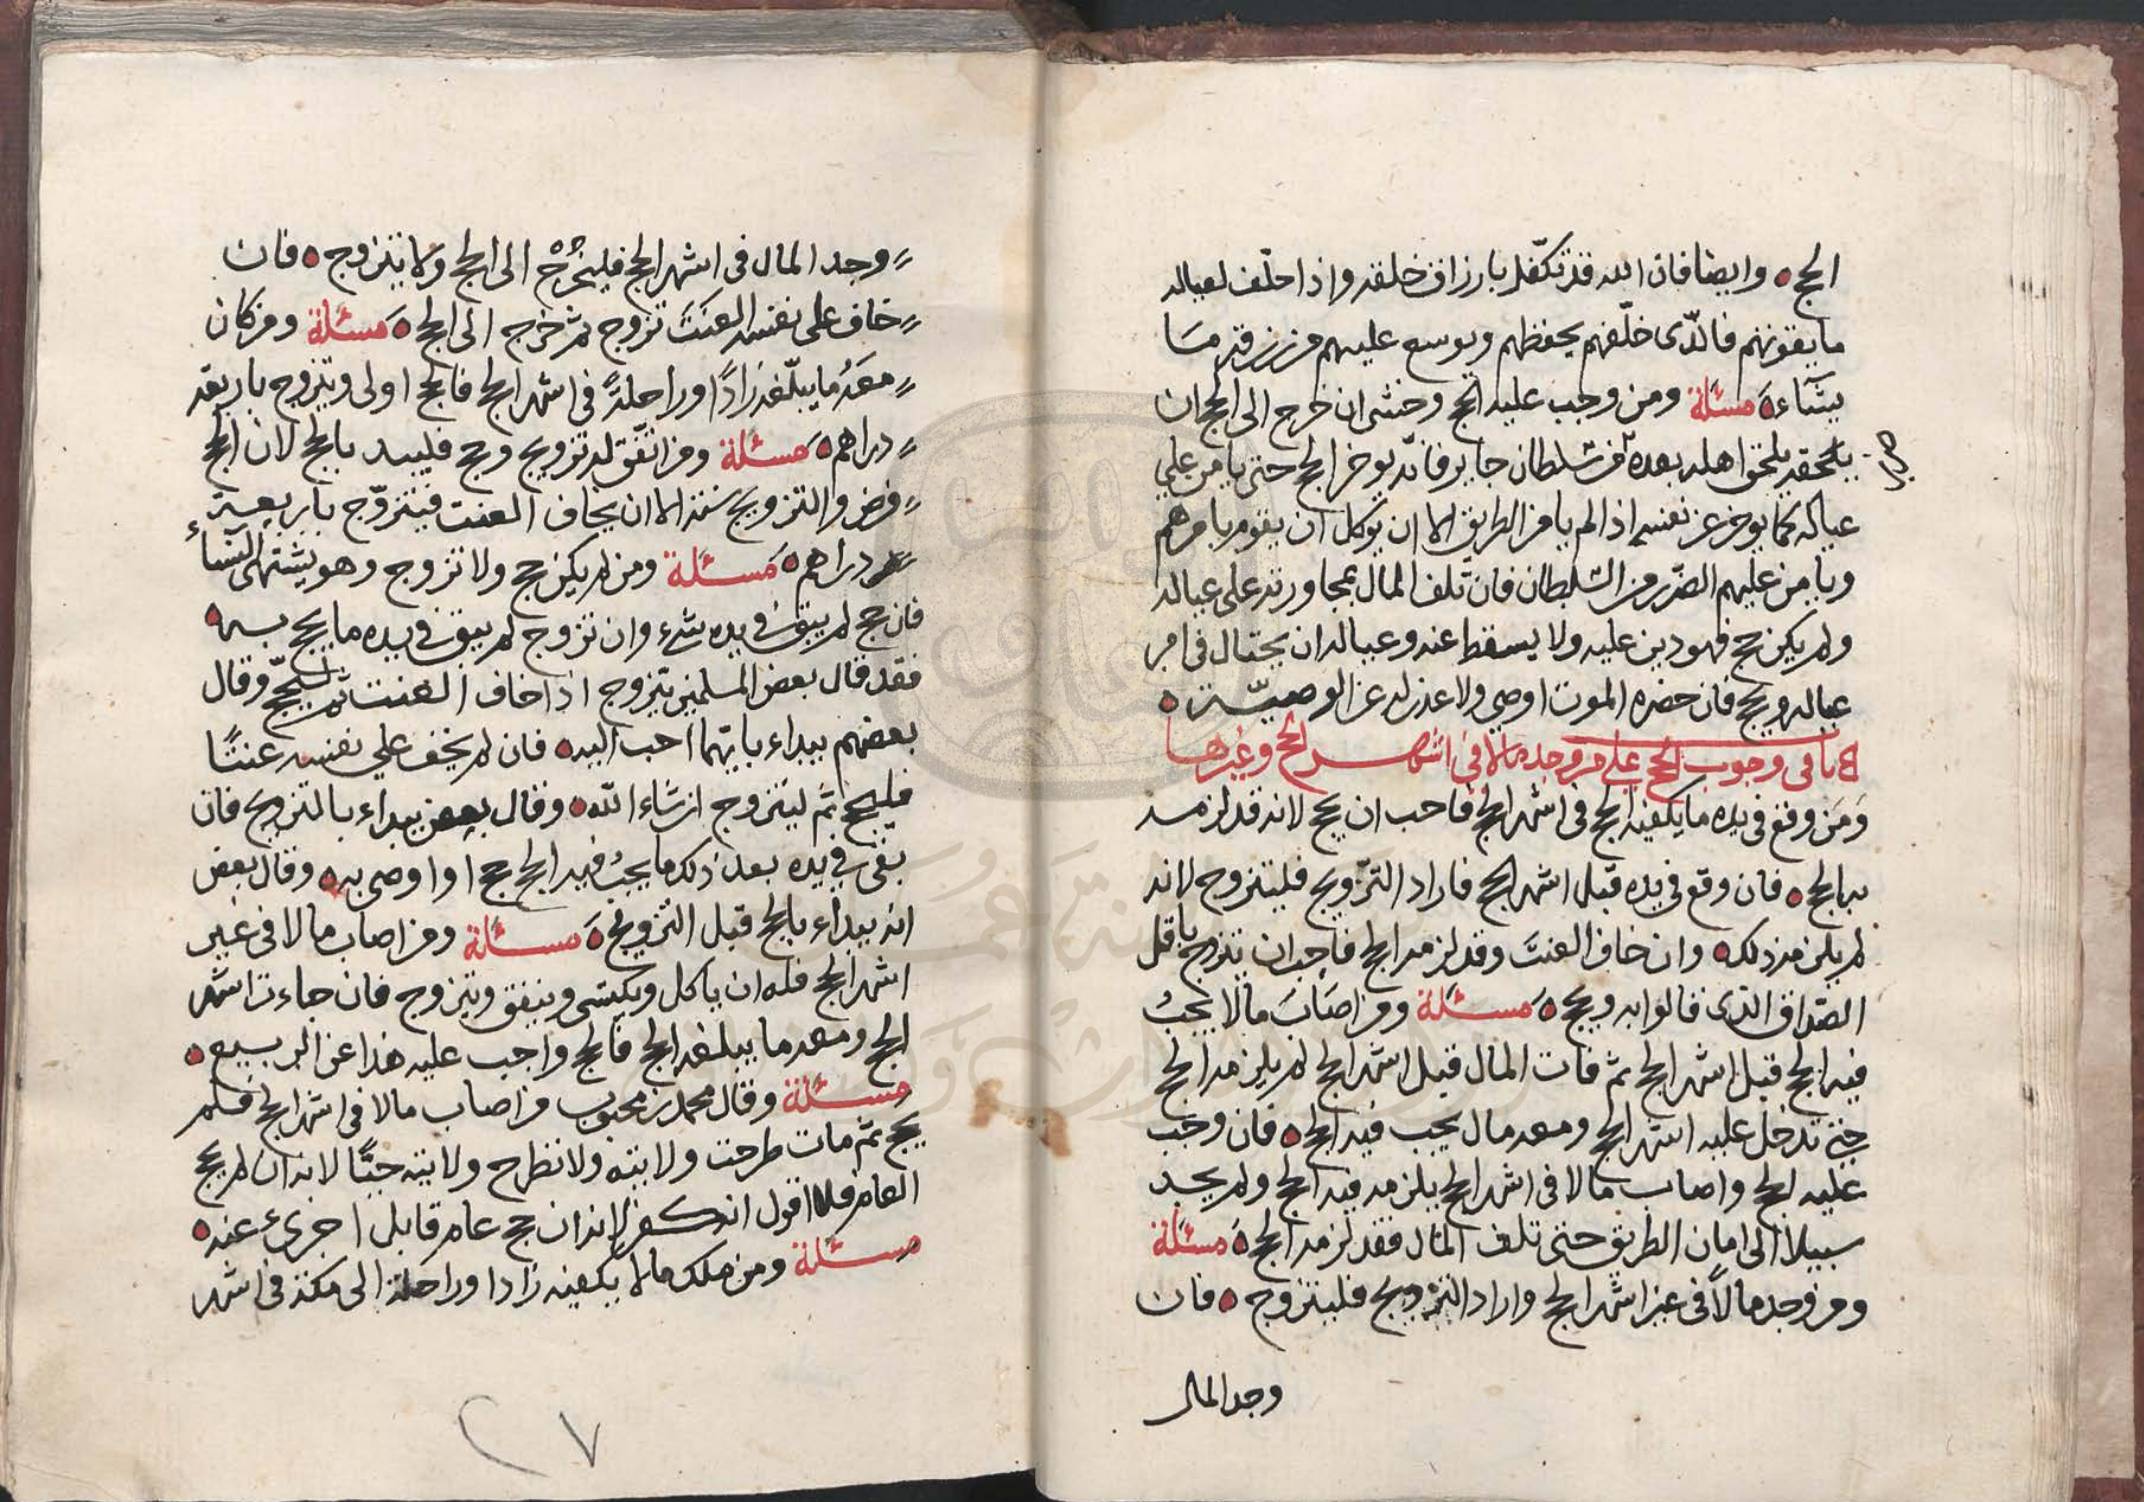 الحج ه وايضا فان الله قد تكفّل بارزاق خلقه واذا خلّف لعياله
ما يقوتهم فالذّى خلّفهم يحفظهم ويوسع عليهم من رزقه مـا
يشآء ه مسئلة ومن وجب عليه الحج وخشى ان خرج الى الحج ان
يلحق اهله بعده من سلطان جاير فانّه يوخر الحج حتى يامن على
عياله كما يوخر عن نفسه اذا لم يامن الطريق الا ان يوكل ان يقوم بامرهم
ويامن عليهم الضّرر من السّلطان فان تلف المال بمجاورته على عياله
ولم يكن حج فهو دين عليه ولا يسقط عنه وعياله ان يحتال فى امر
عياله ويحج فان حضره الموت اوصى ولا عذر له عن الوصيّــة ه
باب فى وجوب الحج على من وجد مالا فى اشهــر الحج وغيرها
وَمَن وقع فى يده ما يكفيه الحج فى اشهر الحج فاحب ان يحج لانه قد لزمــه
الحج ه فان وقع فى يده قبل اشهر الحج فاراد التزّويج فليتزوج لانه
لم يلزمه ذلك ه وان خاف العنتَ وقد لزمه الحج فاحب ان يتزوج باقل
الصّداق الذى قالوا به ويحج ه مسـئلة ومن اصَابَ مالا يجبُ
فيه الحج قبل اشهر الحج ثم فات المال قبل اشهر الحج لم يلزمه الحج
حتى تدخل عليه اشهر الحج ومعه مال يجب فيه الحج ه فان وجب
عليه الحج واصاب مالا فى اشهر الحج يلزمه فيه الحج ولم يجــد
سبيلا الى امان الطريق حتى تلف المال فقد لزمه الحج ه مسئلة
ومن وجد مالاً فى غير اشهر الحج واراد التزويج فليتزوج ه فان
وجد المال
وجد المال فى اشهر الحج فليخرُجْ الى الحج ولا يتزوج ه فان
خاف على نفسه العَنَتَ تزوج ثم خرج الى الحج ه مسئلة ومن كان
معَهُ ما يبلّغه زادًا وراحلةً فى اشهر الحج فالحج اولى ويتزوج باربعة
دراهم ه مسئلة ومن اتفّق له تزويج وحج فليبد بالحج لان الحج
فرض والتزويج سنة الا ان يخاف العنت فيتزوّج باربعــة
دراهم ه مسئلة ومن لم يكن حج ولا تزوج وهو يشتهى النّساءٔ
فان حج لم يبق فى يده شىء وان تزوج لم يبق فى يده ما يحج بــه ه
فقد قال بعض المسلمين يتزوج اذا خاف العنت ثم ليحجّ وقال
بعضهم يبداء بايّهما احب اليه ه فان لم يخف على نفسه عنتًا
فليحج ثم ليتزوج ان شاء الله ه وقال بعض يبداء بالتزويج فان
بقى فى يده بعد ذلك ما يجبُ فيه الحج حج او اوصى به ه وقال بعض
انه يبداء بالحج قبل التزويج ه مســئلة ومن اصاب مالا فى غير
اشهر الحج فله ان ياكل ويكتسى وينفق ويتزوج فان جاءت اشهر
الحج ومعه ما يبلـغه الحج فالحج واجب عليه هذا عن الربــيع ه
مســئلة وقال محمد بن محبوب من اصاب مالا فى اشهر الحج فـلم
يحج ثم مات طرحت ولايته ولا تطرح ولايته حيًّا لانه ان لم يحج
العام فلا اقول انه كفر لانه ان حج عام قابل اجزىٔ عنه ه
مســئلة ومن ملك مالا يكفيه زادا وراحلة الى مكة فى اشهر
٢٧